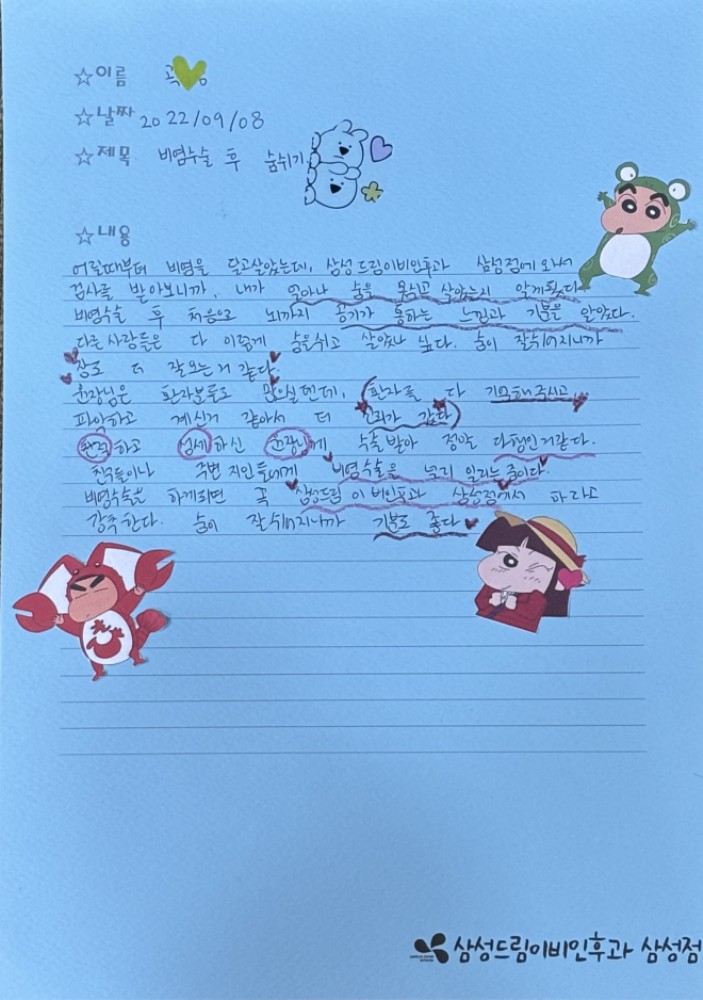 ☆이름
☆날짜 2022/09/08
☆제목 비염수술 후 숨쉬기
☆내용
어릴때부터 비염을 달고살았는데, 삼성드림이비인후과 삼성점에 와서
검사를 받아보니까, 내가 얼마나 숨을 못쉬고 살았는지 알게됐다.
비염수술 후 처음으로 뇌까지 공기가 통하는 느낌과 기분을 알았다.
다른사람들은 다 이렇게 숨을쉬고 살았나 싶다. 숨이 잘쉬어지니까
잠도 더 잘오는거 같다.
원장님은 환자분들도 많으실텐데, (환자를 다 기억해주시고
파악하고 계신거 같아서 더 신뢰가 갔다)
하고 섬세하신 원장님께 수술받아 정말 다행인거같다.
친구들이나 주변 지인들에게 비염수술을 널리 알리는 중이다.
비염수술은 하게되면 꼭 삼성드림이비인후과 삼성점에서 하라고
강추한다. 숨이 잘쉬어지니까 기분도 좋다
삼성드림이비인후과 삼성점